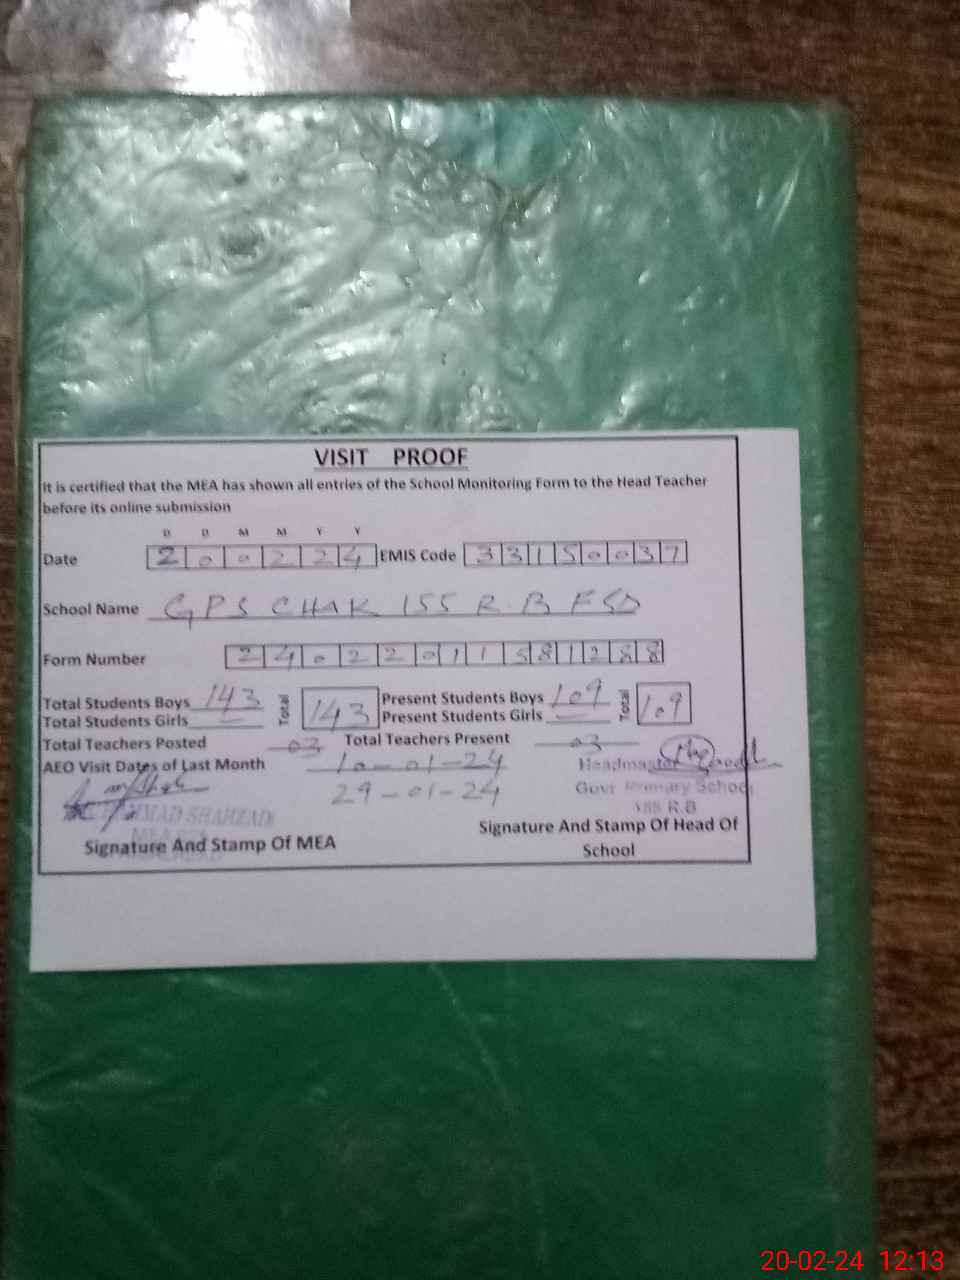 VISIT PROOF
It is certified that the MEA has shown all entries of the School Monitoring Form to the Head Teacher
before its online submission
D D M M Y Y
Date 2 0 0 2 2 4 EMIS Code 3 3 1 5 0 0 3 7
School Name GPS CHAK 155 R.B FSD
Form Number 2 4 0 2 2 0 1 1 5 8 1 2 8 8
Total Students Boys 143 Total 143 Present Students Boys 109 Total 109
Total Students Girls — Present Students Girls —
Total Teachers Posted 03 Total Teachers Present 03
AEO Visit Dates of Last Month 10-01-24 Headmaster
29-01-24 Govt Primary School
SHAHZAD 155 R.B
Signature And Stamp Of MEA Signature And Stamp Of Head Of
School
20-02-24 12:13